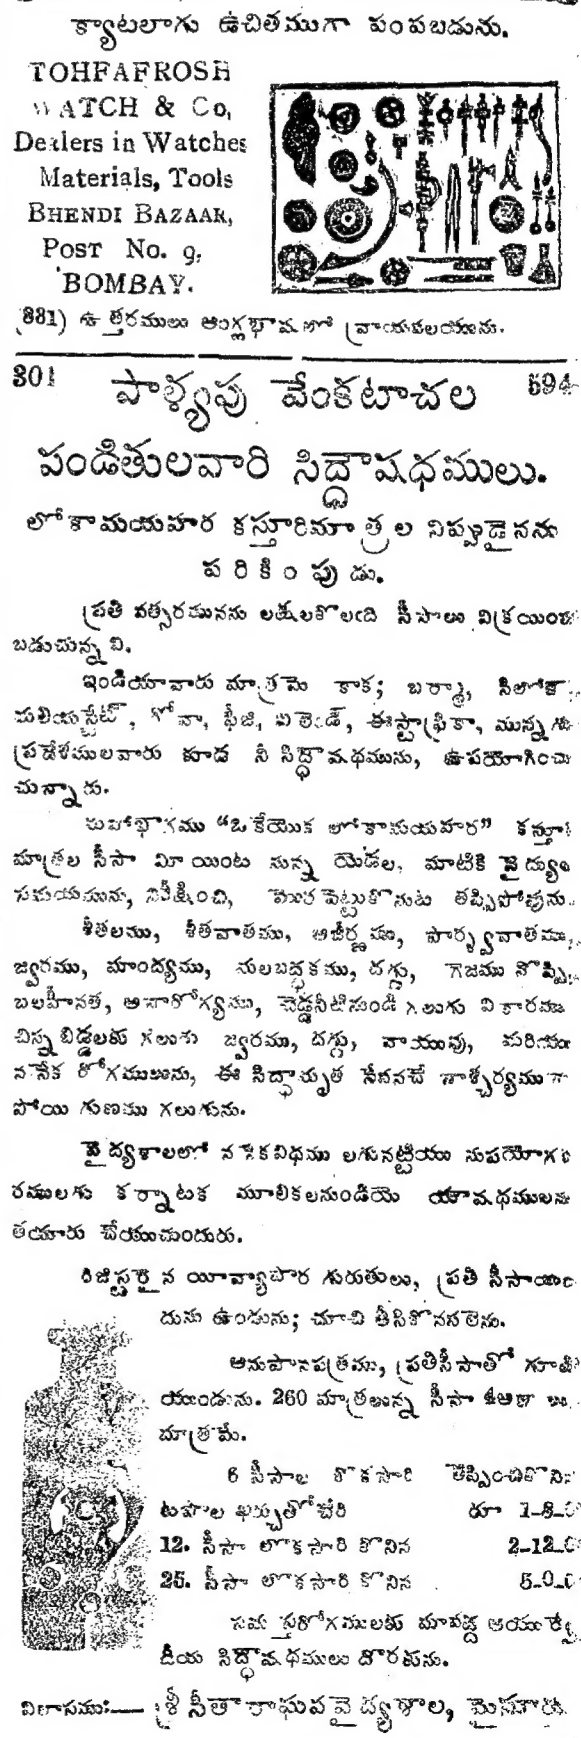 క్యాటలాగు ఉచితముగా పంపబడును.
TOHFAFROSH
WATCH & Co,
Dealers in Watches
Materials, Tools
BHENDI BAZAAR,
POST NO. 9,
BOMBAY.
(881) ఉత్తరములు ఆంగ్లభాషలో వ్రాయవలయును.
301 పాళ్యపు వేంకటాచల 594
పండితులవారి సిద్ధౌషధములు.
లోకామయహర కస్తూరిమాత్రల నిప్పుడైనను
పరికింపుడు.
ప్రతి వత్సరమునను లక్షలకొలది సీసాలు విక్రయింప
బడుచున్నవి.
ఇండియావారు మాత్రమె కాక; బర్మా, సిలోన్,
మలియస్టేట్, గోవా, ఫీజి, ఐలెండ్, ఈస్టాఫ్రికా, మున్నగు
ప్రదేశములవారు కూడ నీ సిద్ధౌషథమును, ఉపయోగించు
చున్నారు.
మహాభాగము "ఒకేయొక లోకామయహర" కస్తూరి
మాత్రల సీసా మీ యింట నున్న యెడల, మాటికి వైద్యుల
సమయమును, నిరీక్షించి, మొరపెట్టుకొనుట తప్పిపోవును.
శీతలము, శీతవాతము, అజీర్ణము, పార్శ్వవాతము,
జ్వరము, మాంద్యము, మలబద్ధకము, దగ్గు, గెజము నొప్పి,
బలహీనత, అనారోగ్యము, చెడ్డనీటినుండి గలుగు వికారము
చిన్నబిడ్డలకు గలుగు జ్వరము, దగ్గు, వాయువు, మరియు
ననేక రోగములును, ఈ సిద్ధామృత సేవనచే నాశ్చర్యముగా
పోయి గుణము గలుగును.
వైద్యశాలలో ననేకవిధము లగునట్టియు నుపయోగక
రములగు కర్నాటక మూలికలనుండియె యౌషథములను
తయారు చేయుచుందురు.
రిజిస్టరైన యీవ్యాపార గురుతులు, ప్రతి సీసాయం
దును ఉండును; చూచి తీసికొనవలెను.
అనుపానపత్రము, ప్రతిసీసాతో గూడి
యుండును. 260 మాత్రలున్న సీసా 4అణాలు
మాత్రమే.
6 సీసాల నొకసారి తెప్పించికొనిన
టపాల ఖర్చుతోచేరి రూ 1-8-0
12. సీసా లొకసారి కొనిన 2-12-0
25. సీసా లొకసారి కొనిన 5-0-0
సమస్తరోగములకు మావద్ద ఆయుర్వే
దీయ సిద్ధౌషథములు దొరకును.
విలాసము:— శ్రీ సీతారాఘవవైద్యశాల, మైసూరు.